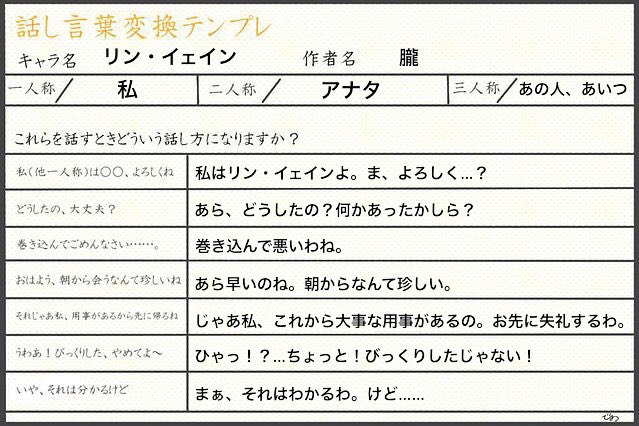 話し言葉変換テンプレ
キャラ名 リン・イェイン 作者名 朧
一人称／ 私 二人称／ アナタ 三人称／あの人、あいつ
これらを話すときどういう話し方になりますか？
私(他一人称)は〇〇、よろしくね 私はリン・イェインよ。ま、よろしく...？
どうしたの、大丈夫？ あら、どうしたの？何かあったかしら？
巻き込んでごめんなさい……。 巻き込んで悪いわね。
おはよう、朝から会うなんて珍しいね あら早いのね。朝からなんて珍しい。
それじゃあ私、用事があるから先に帰るね じゃあ私、これから大事な用事があるの。お先に失礼するわ。
うわあ！びっくりした、やめてよ〜 ひゃっ！？...ちょっと！びっくりしたじゃない！
いや、それは分かるけど まぁ、それはわかるわ。けど……